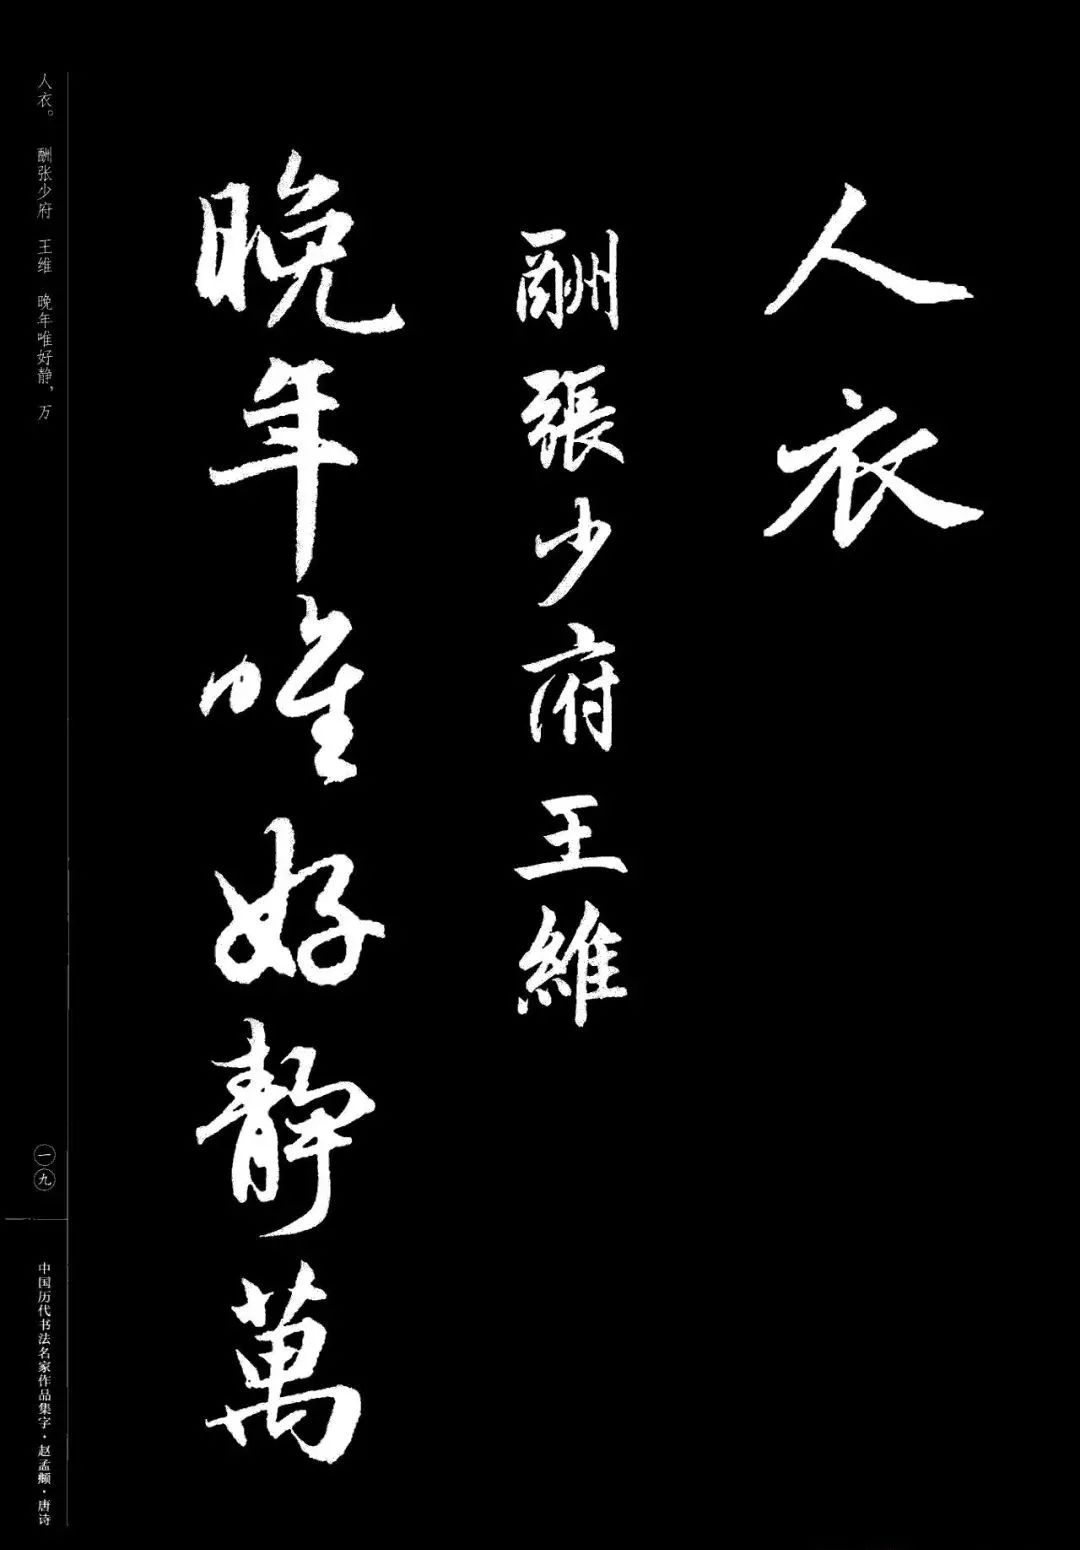 人衣
酬張少府王維
晚年唯好静萬
人衣。 酬张少府 王维 晚年唯好静，万
一九
中国历代书法名家作品集字·赵孟頫·唐诗